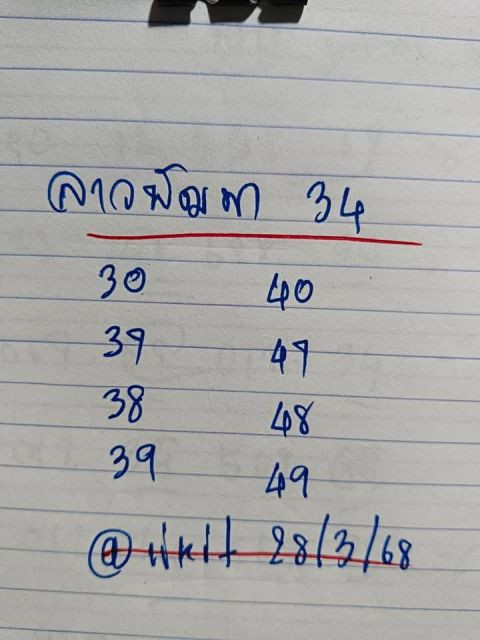 ลาวพัฒนา 34
30 40
37 47
38 48
39 49
@ 28/3/68